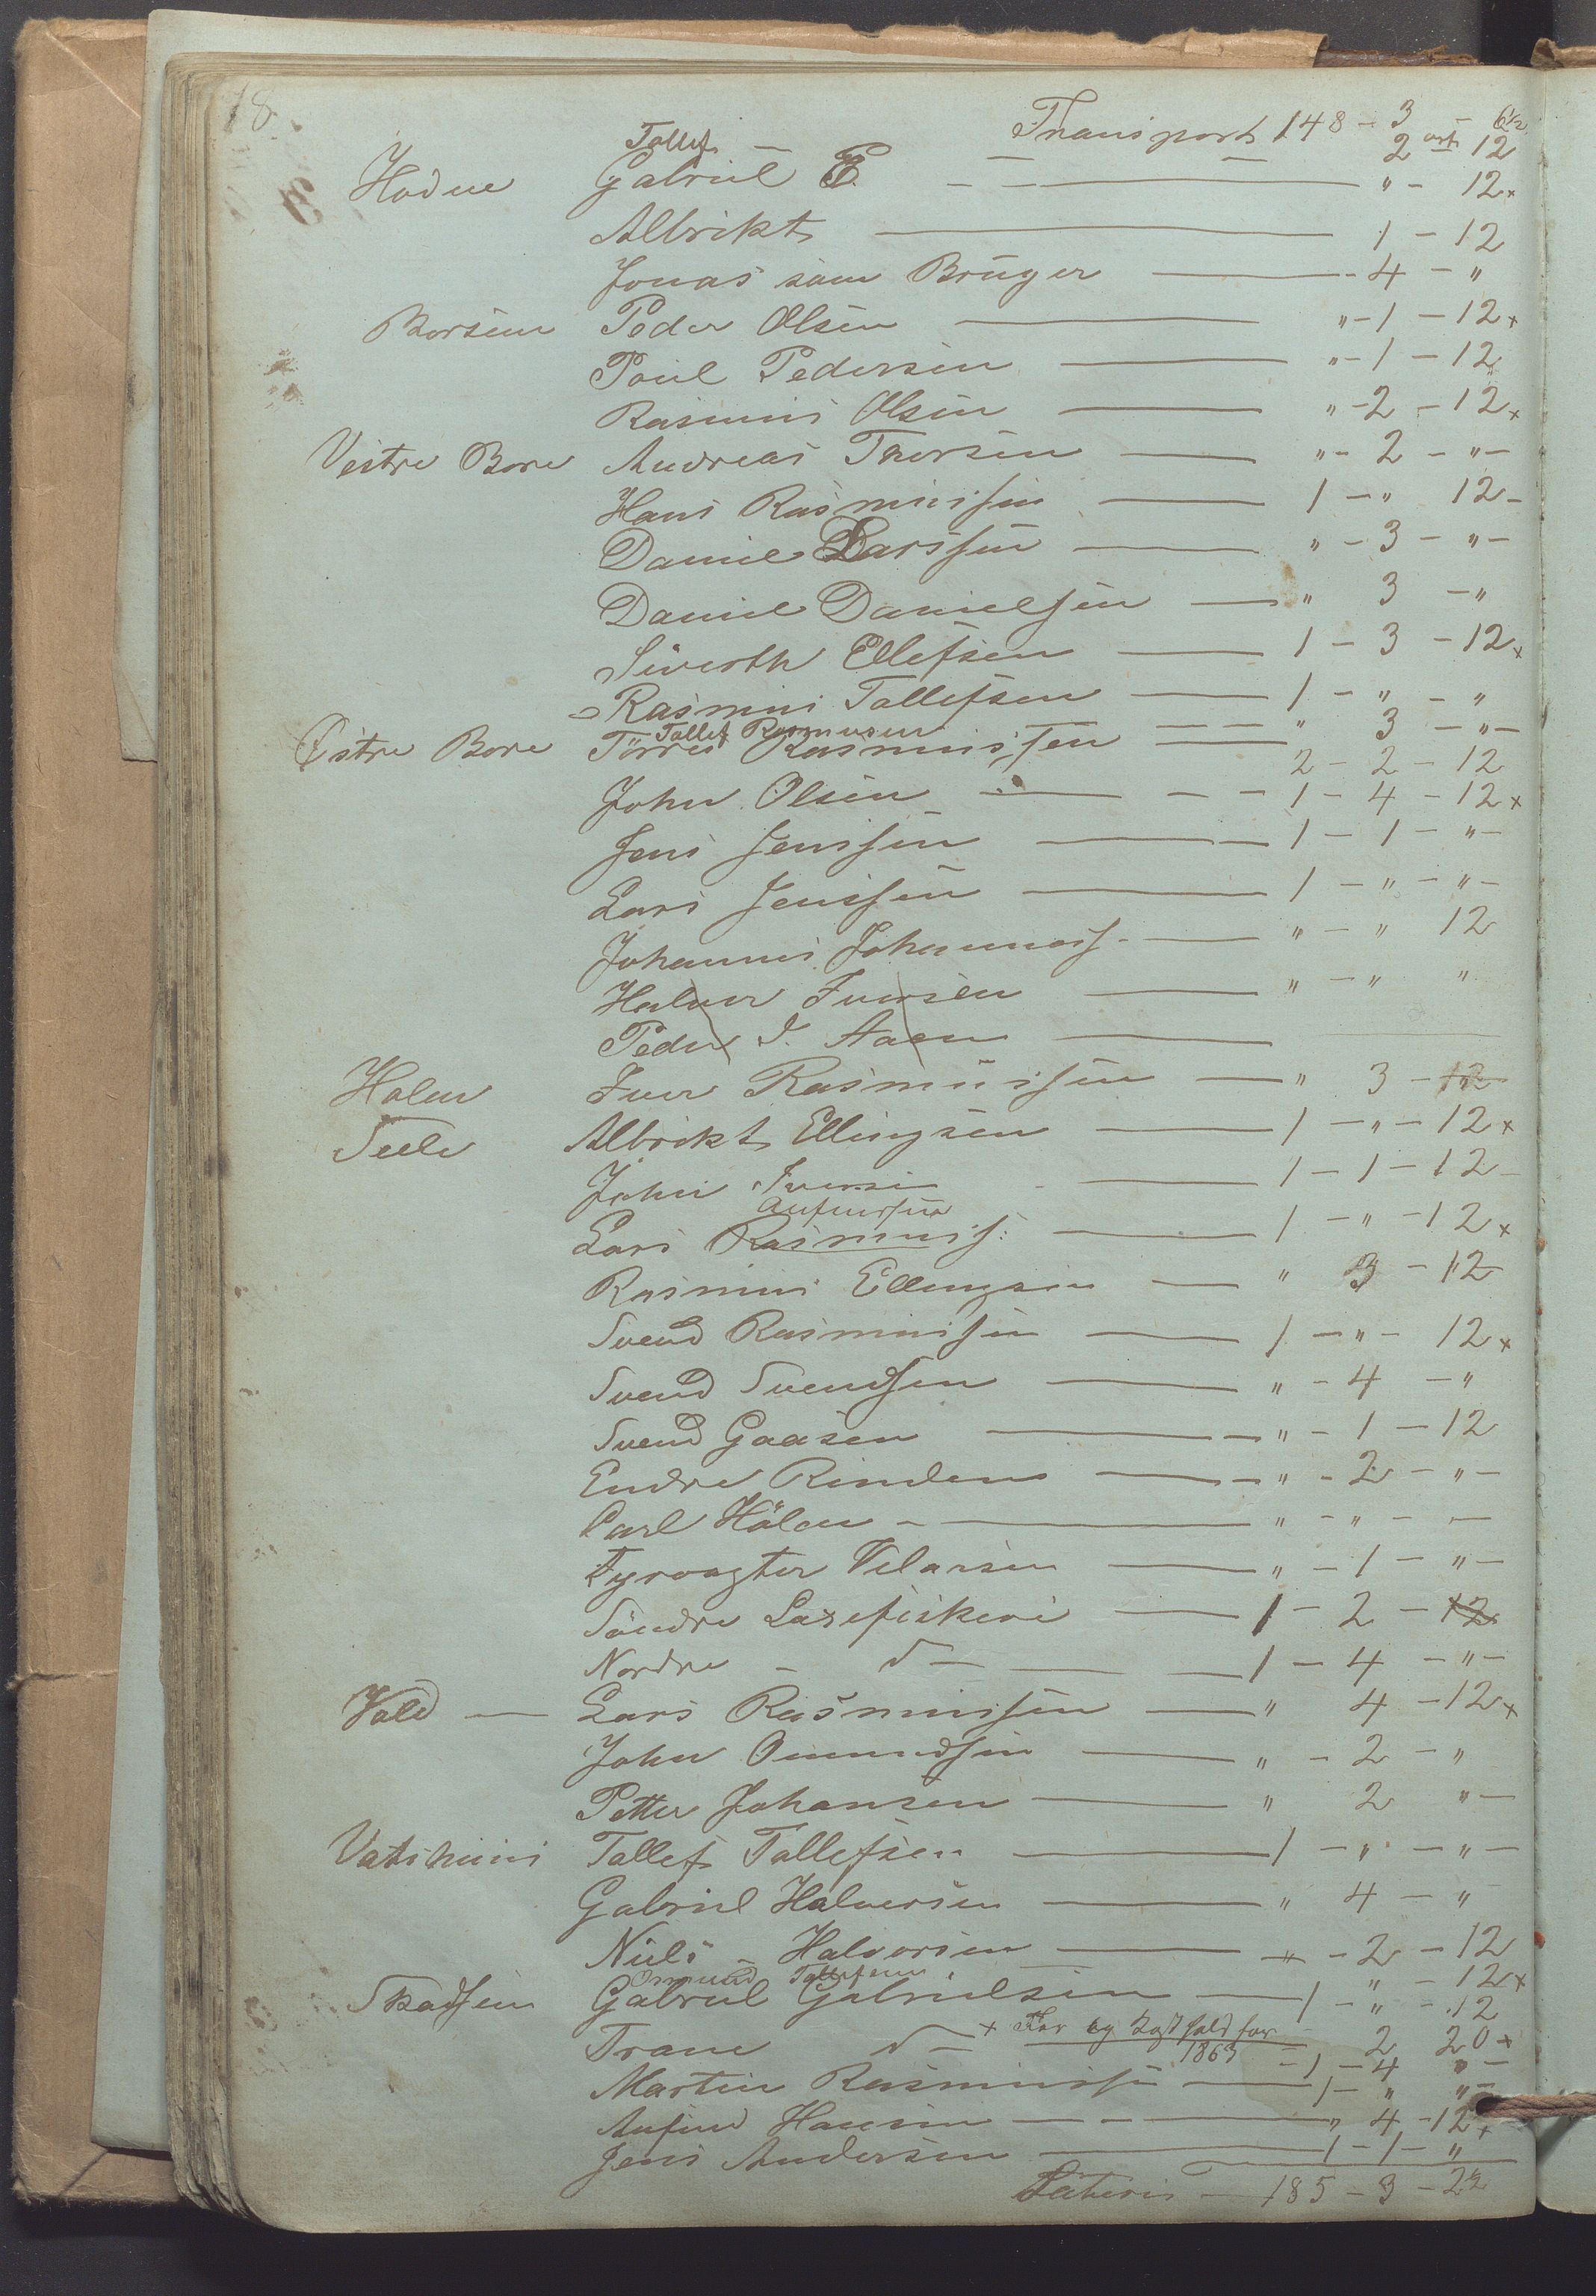 18.
Transport 148 - 3 - 6½
Tollef — — — 2 ort 12
Hodne Gabriel E. — — " - 12 x
Albrikt — 1 - 12
Jonas som Brüger — 4 - "
Borsem Peder Olsen — " - 1 - 12 x
Poul Pedersen — " - 1 - 12
Rasmus Olsen — " - 2 - 12 x
Vestre Bore Andreas Thorsen — " - 2 - " -
Hans Rasmussen — 1 - " 12 -
Daniel Larssen — " - 3 - " -
Daniel Danielsen — " 3 - "
Siverth Ellefsen — 1 - 3 - 12 x
Rasmus Tollefsen — 1 - " - "
Tollef Rasmusen — — " 3 - " -
Østre Bore Törres Rasmussen — 2 - 2 - 12
John Olsen — — — 1 - 4 - 12 x
Jens Jenssen — 1 - 1 - " -
Lars Jenssen — 1 - " - " -
Johannes Johanness. — " - " 12
Halvor Iversen — " - " "
Peder I. Aaen —
Holen Iver Rasmussen — " 3 - 12
Seele Albrikt Ellingsen — 1 - " - 12 x
John Iversen — 1 - 1 - 12 -
Anfinsen
Lars Rasmuss: — 1 - " - 12 x
Rasmus Ellingsen — " 3 - 12
Svend Rasmussen — 1 - " - 12 x
Svend Svendsen — " - 4 - "
Svend Gaasen — " - 1 - 12
Endre Rinden — " - 2 - " -
Carl Hölen — " - " - " -
Fyrvogter Vilarsen — " - 1 - " -
Söndre Laxefiskeri — 1 - 2 - 12
Nordre - d — 1 - 4 - " -
Vold — Lars Rasmussen — " 4 - 12 x
John Omundsen — " - 2 - "
Petter Johansen — " 2 " -
Vatshuus Tollef Tollefsen — 1 - " - " -
Gabriel Halvorsen — " 4 - "
Niels - Halvorsen — " - 2 - 12
Omund Tollefsen — " - 12 x
Skadsem Gabriel Gabrielsen — 1 - " - 12
Trane d — x For og Kost fold for 1863 — 2 20 x
- 1 - 4 " -
Martin Rasmussen — 1 - " " -
Anfind Hansen — — " 4 - 12 x
Jens Andersen — 1 - 1 - "
Lateris — 185 - 3 - 2½